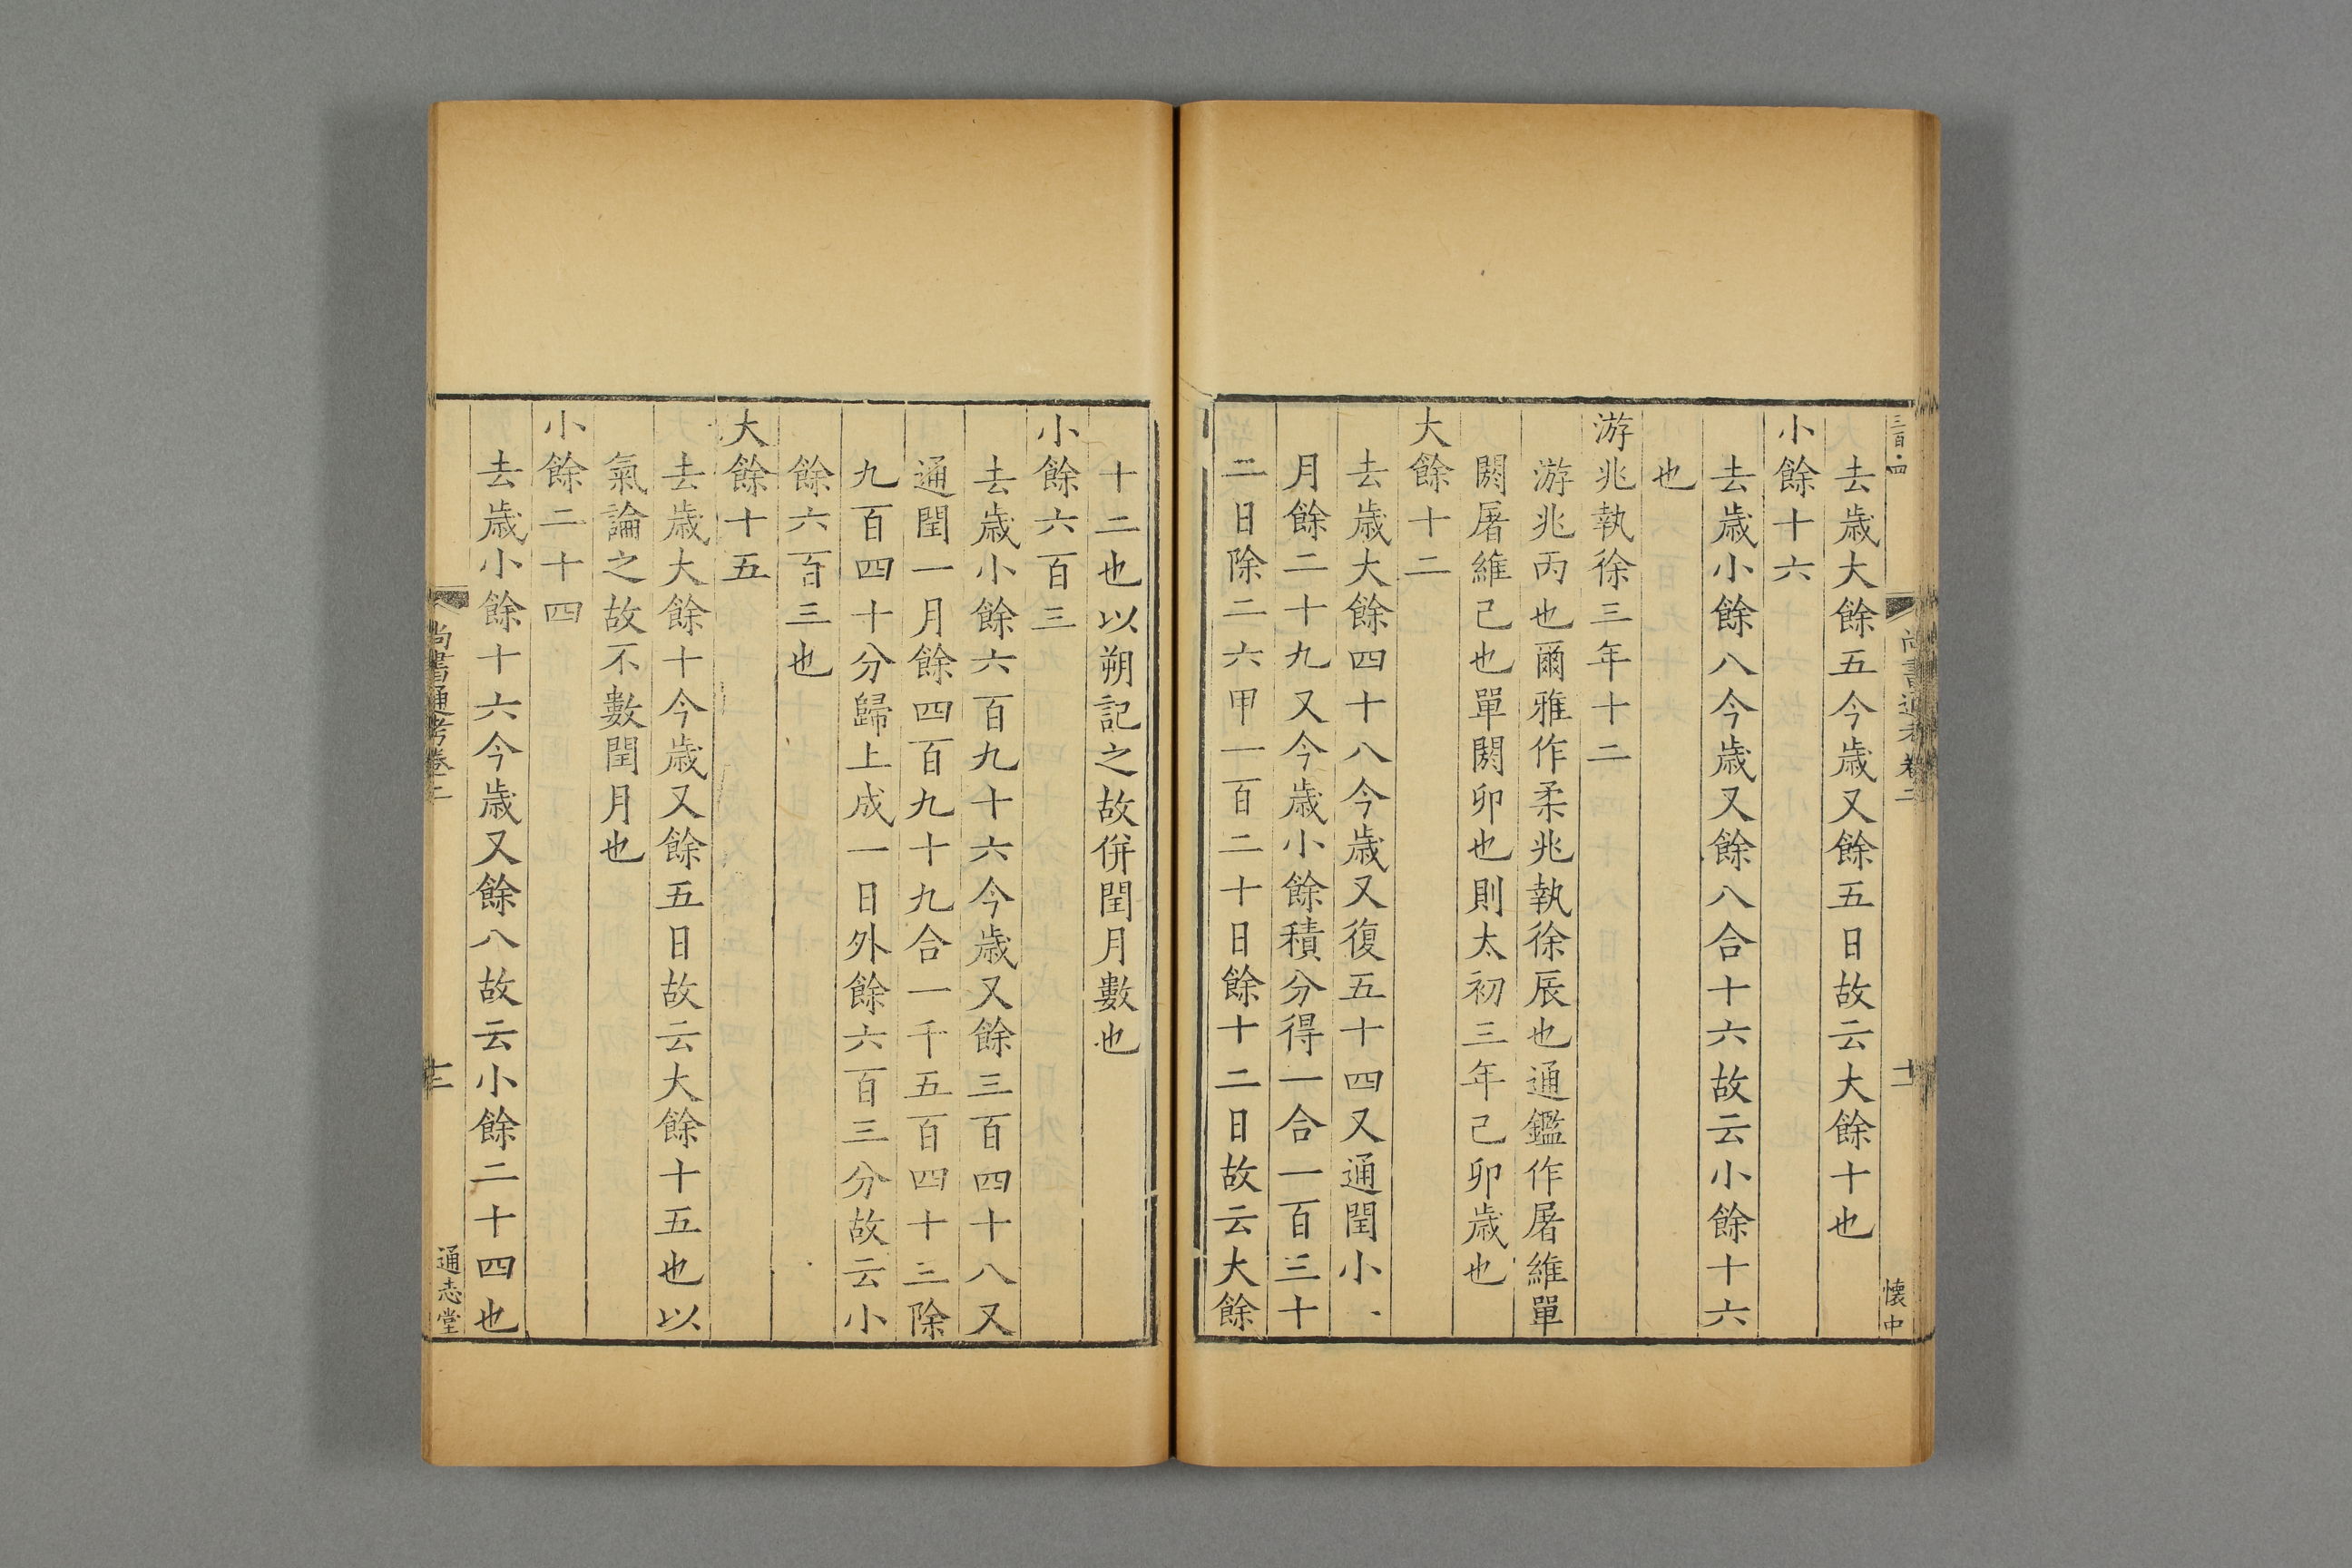 三百四
尚書通考卷二
十二
懐中
去歳大餘五今歳又餘五日故云大餘十也
小餘十六
去歳小餘八今歳又餘八合十六故云小餘十六
也
游兆執徐三年十二
游兆丙也爾雅作柔兆執徐辰也通鑑作屠維單
閼屠維己也單閼卯也則太初三年己卯歳也
大餘十二
去歳大餘四十八今歳又復五十四又通閏小
月餘二十九又今歳小餘積分得一合一百三十
二日除二六甲一百二十日餘十二日故云大餘
十二也以朔記之故併閏月數也
小餘六百三
去歳小餘六百九十六今歳又餘三百四十八又
通閏一月餘四百九十九合一千五百四十三除
九百四十分歸上成一日外餘六百三分故云小
餘六百三也
大餘十五
去歳大餘十今歳又餘五日故云大餘十五也以
氣論之故不數閏月也
小餘二十四
去歳小餘十六今歳又餘八故云小餘二十四也
尚書通考卷二
十三
通志堂